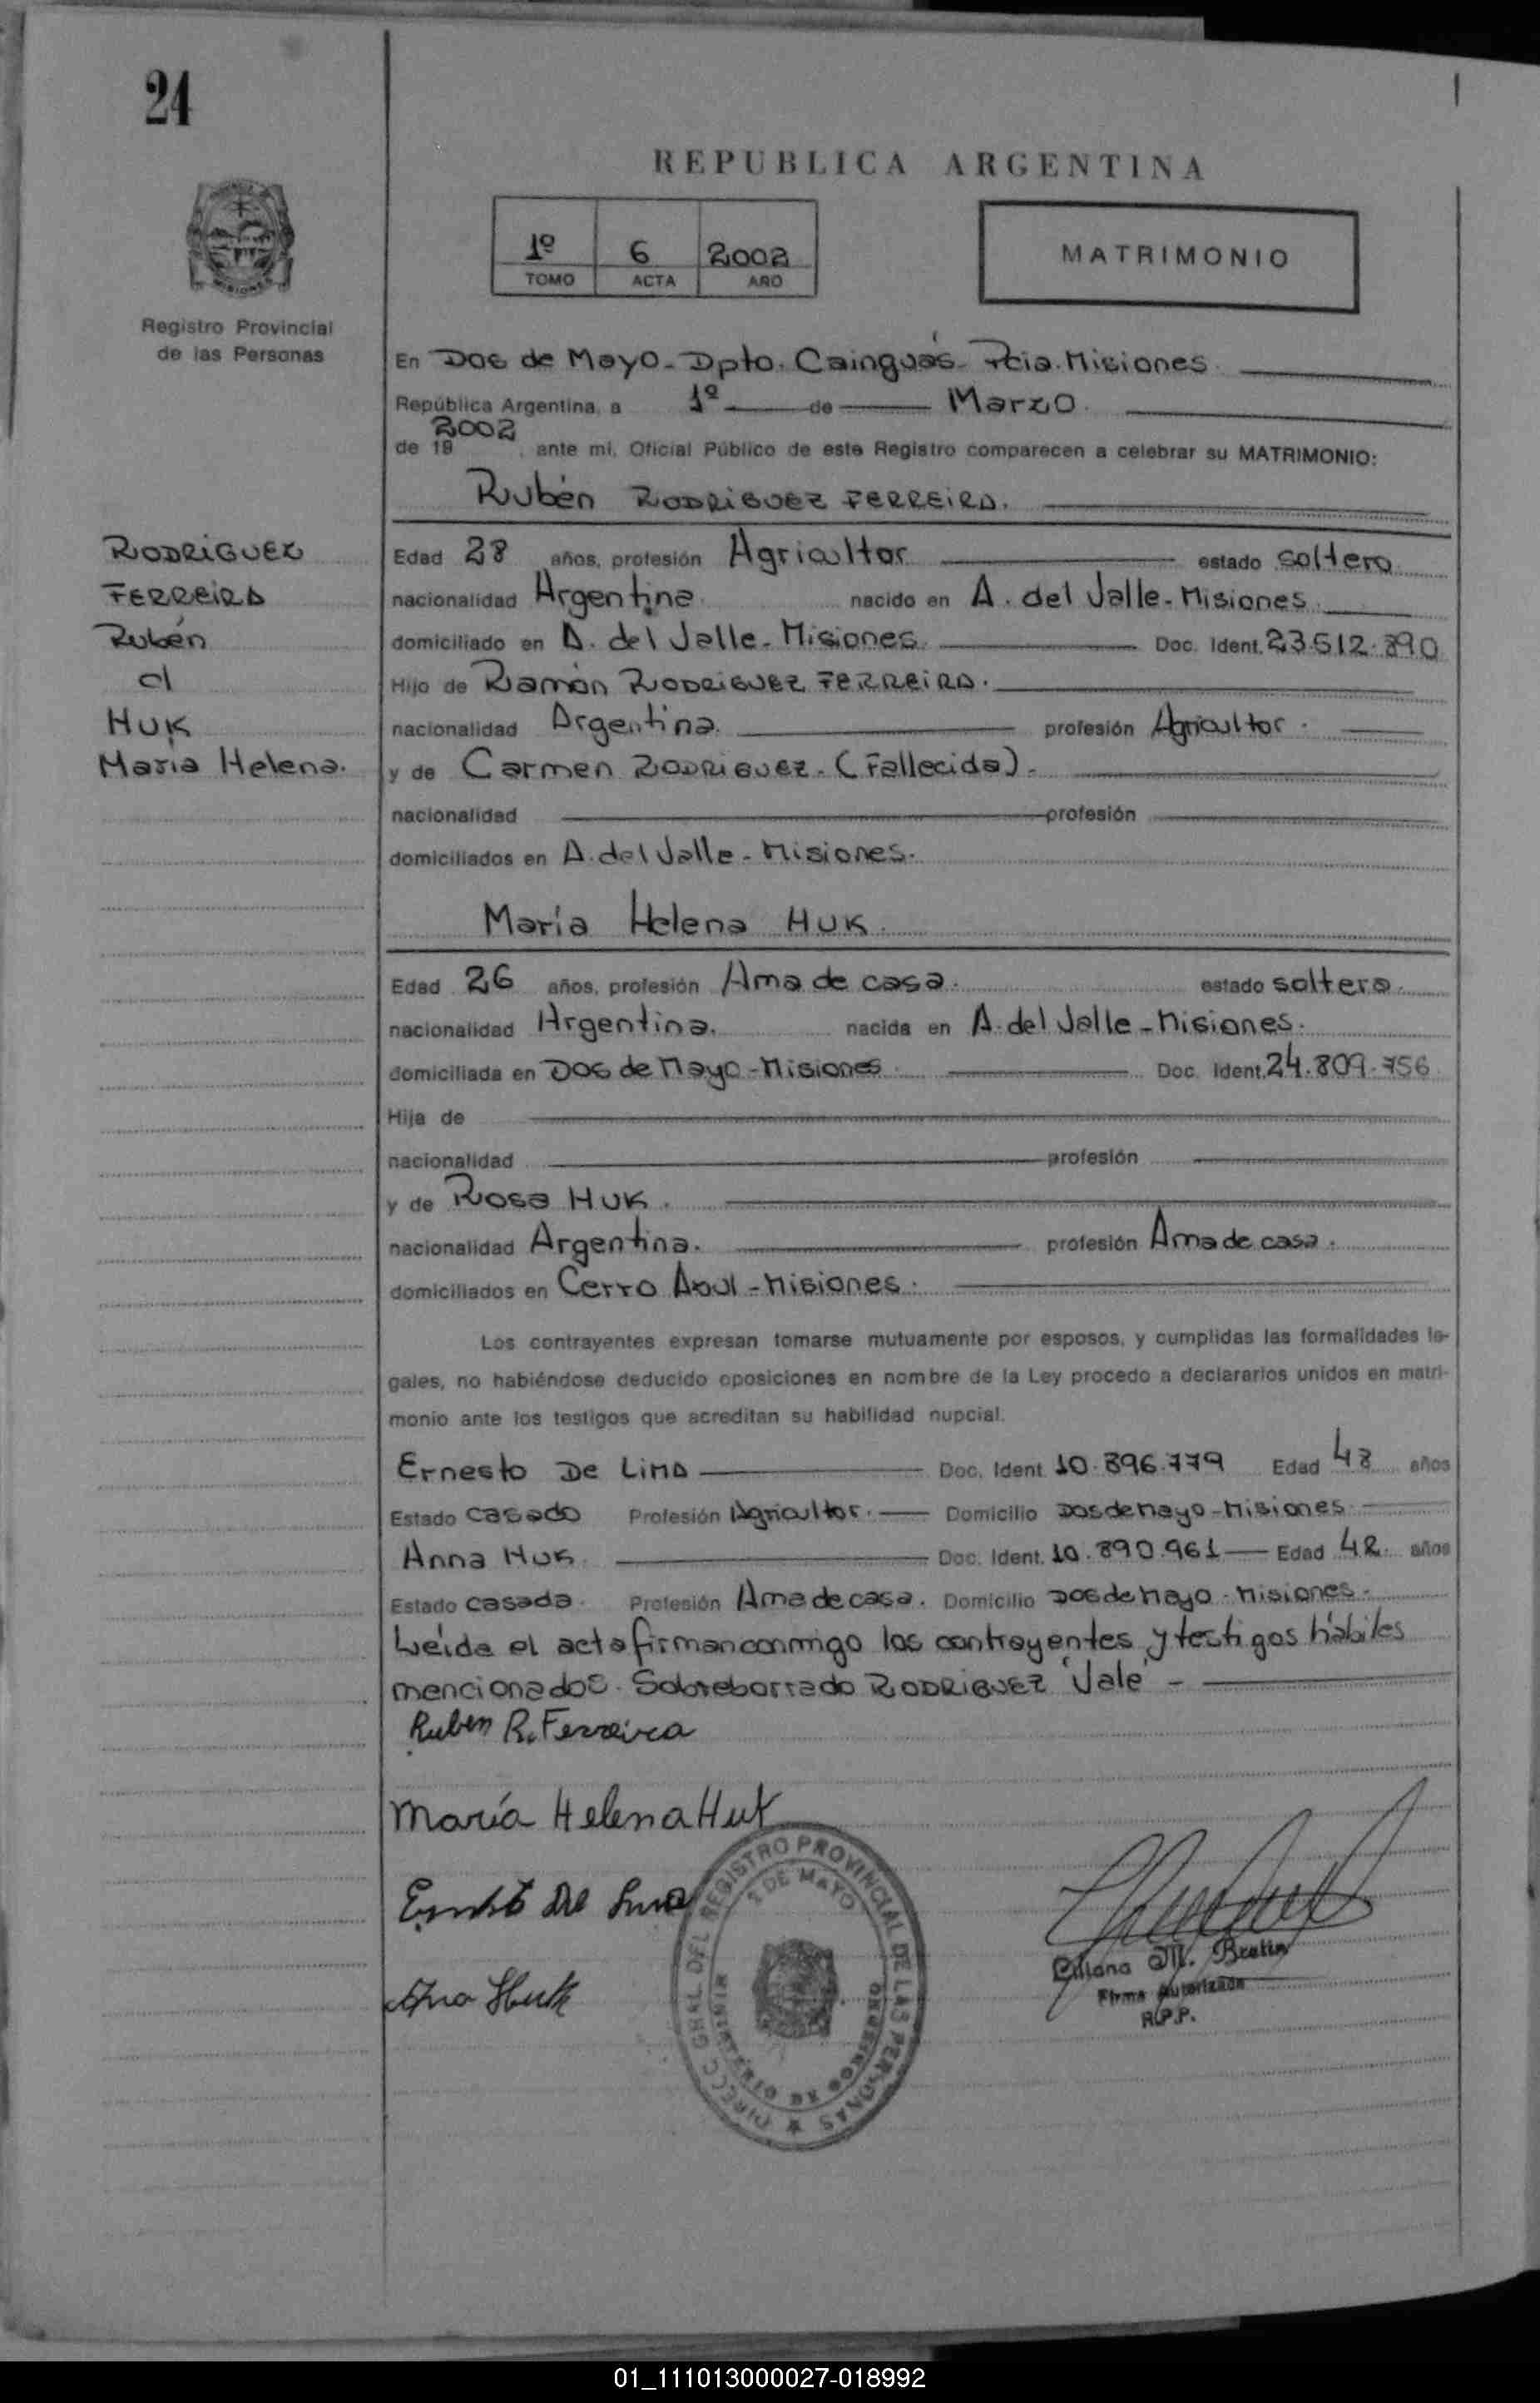 24
REPUBLICA ARGENTINA
1º 6 2002
TOMO ACTA AÑO
MATRIMONIO
Registro Provincial
de las Personas
En Dos de Mayo - Dpto. Cainguás - Pcia. Misiones
República Argentina, a 1º de Marzo.
de 19 2002, ante mi, Oficial Público de este Registro comparecen a celebrar su MATRIMONIO:
Rubén RODRIGUEZ FERREIRA.
RODRIGUEZ
FERREIRA
Rubén
c/
HUK
María Helena.
Edad 28 años, profesión Agricultor estado soltero
nacionalidad Argentina nacido en A. del Valle - Misiones
domiciliado en A. del Valle - Misiones Doc. Ident. 23.512.890
Hijo de Ramón RODRIGUEZ FERREIRA.
nacionalidad Argentina. profesión Agricultor.
y de Carmen RODRIGUEZ. (Fallecida).
nacionalidad profesión
domiciliados en A. del Valle - Misiones.
María Helena HUK.
Edad 26 años, profesión Ama de casa. estado soltera.
nacionalidad Argentina. nacida en A. del Valle - Misiones.
domiciliada en Dos de Mayo - Misiones. Doc. Ident. 24.809.756
Hija de
nacionalidad profesión
y de Rosa HUK.
nacionalidad Argentina. profesión Ama de casa.
domiciliados en Cerro Azul - Misiones.
Los contrayentes expresan tomarse mutuamente por esposos, y cumplidas las formalidades le-
gales, no habiéndose deducido oposiciones en nombre de la Ley procedo a declararlos unidos en matri-
monio ante los testigos que acreditan su habilidad nupcial.
Ernesto DE LIMA Doc. Ident. 10.896.779 Edad 48 años
Estado casado Profesión Agricultor. Domicilio Dos de Mayo - Misiones
Anna HUK. Doc. Ident. 10.890.961 Edad 42. años
Estado casada. Profesión Ama de casa. Domicilio Dos de Mayo - Misiones.
Leída el acta firman conmigo los contrayentes y testigos hábiles
mencionados. Sobreborrado RODRIGUEZ "Vale" -
Ruben R. Ferreira
María Helena Huk
Ernesto De Lima
Ana Huk
DIRECC GRAL DEL REGISTRO PROVINCIAL DE LAS PERSONAS
2 DE MAYO
M. 
Firma Autorizada
R.P.P.
01_111013000027-018992